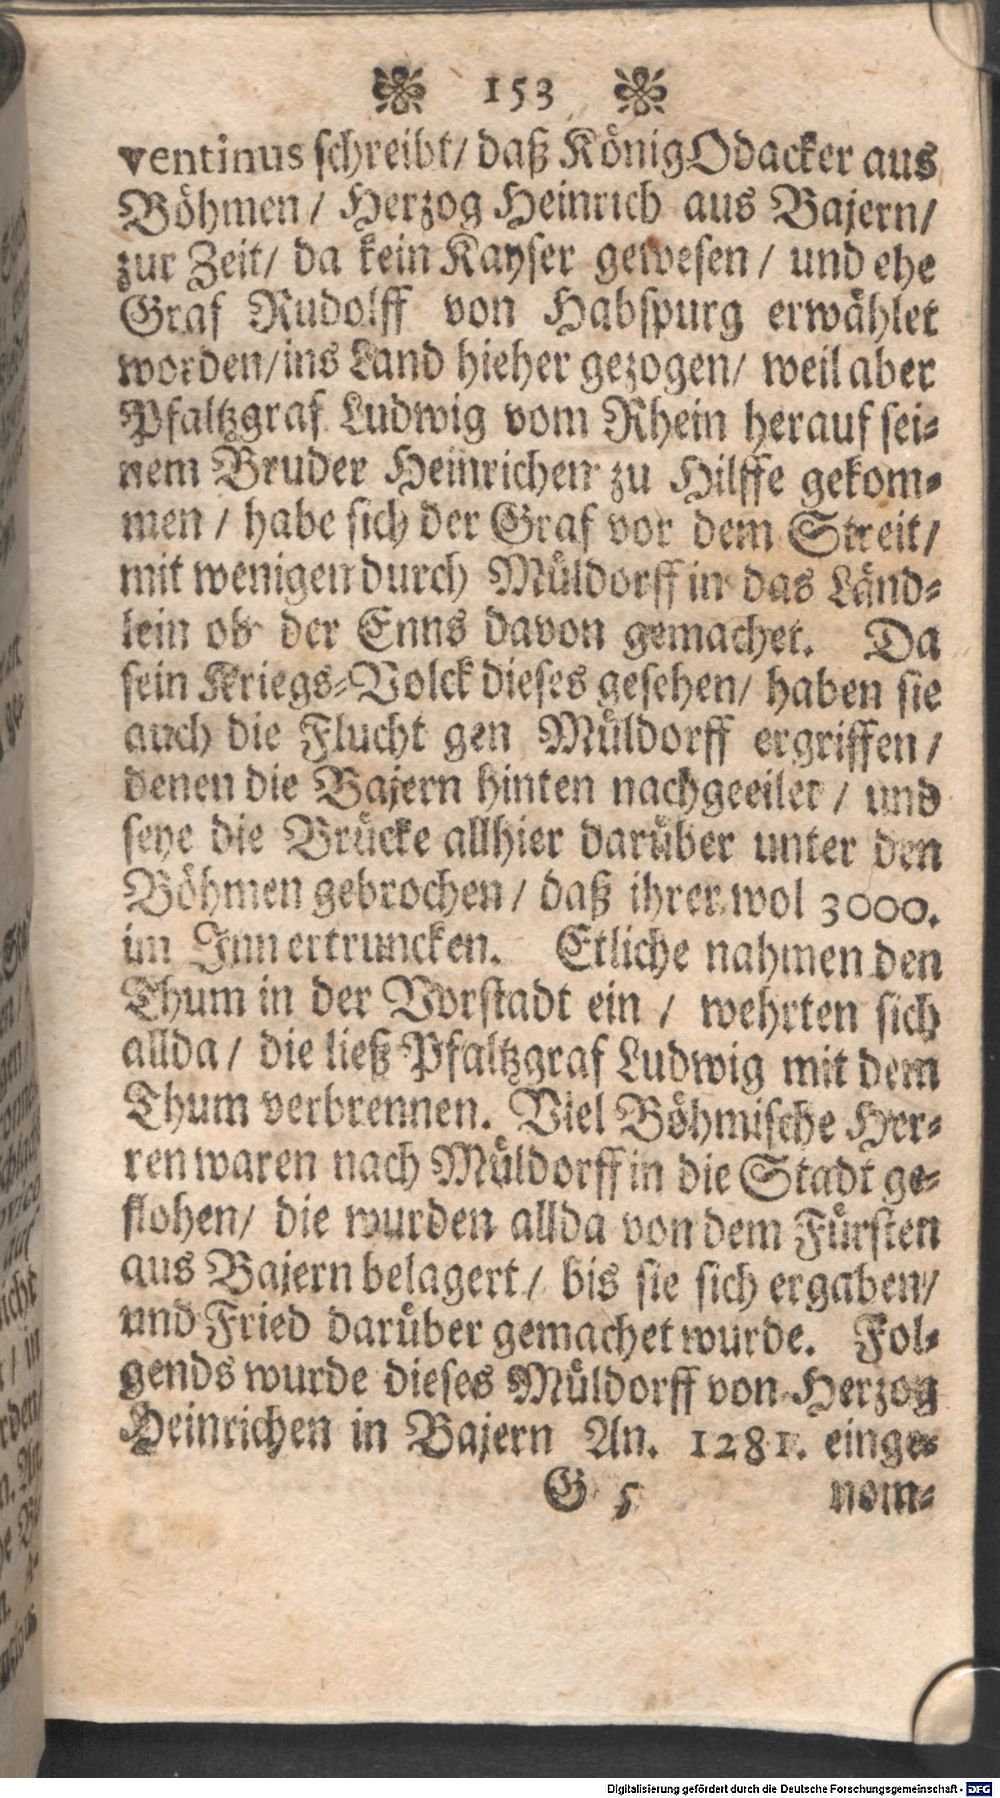 153
ventinus schreibt/ daß König Odacker aus
Böhmen / Herzog Heinrich aus Bajern/
zur Zeit/ da kein Kayser gewesen / und ehe
Graf Rudolff von Habspurg erwählet
worden/ins Land hieher gezogen/ weil aber
Pfaltzgraf Ludwig vom Rhein herauf sei-
nem Bruder Heinrichen zu Hilffe gekom-
men / habe sich der Graf vor dem Streit/
mit wenigen durch Müldorff in das Länd-
lein ob der Enns davon gemachet. Da
sein Kriegs-Volck dieses gesehen/ haben sie
auch die Flucht gen Müldorff ergriffen /
denen die Bajern hinten nachgeeilet / und
seye die Brücke allhier darüber unter den
Böhmen gebrochen / daß ihrer wol 3000.
im Inn ertruncken. Etliche nahmen den
Thum in der Vorstadt ein / wehrten sich
allda / die ließ Pfaltzgraf Ludwig mit dem
Thum verbrennen. Viel Böhmische Her-
ren waren nach Müldorff in die Stadt ge-
flohen/ die wurden allda von dem Fürsten
aus Bajern belagert / bis sie sich ergaben/
und Fried darüber gemachet wurde. Fol-
gends wurde dieses Müldorff von Herzog
Heinrichen in Bajern An. 1281. einge-
G 5 nom-
Digitalisierung gefördert durch die Deutsche Forschungsgemeinschaft - DFG